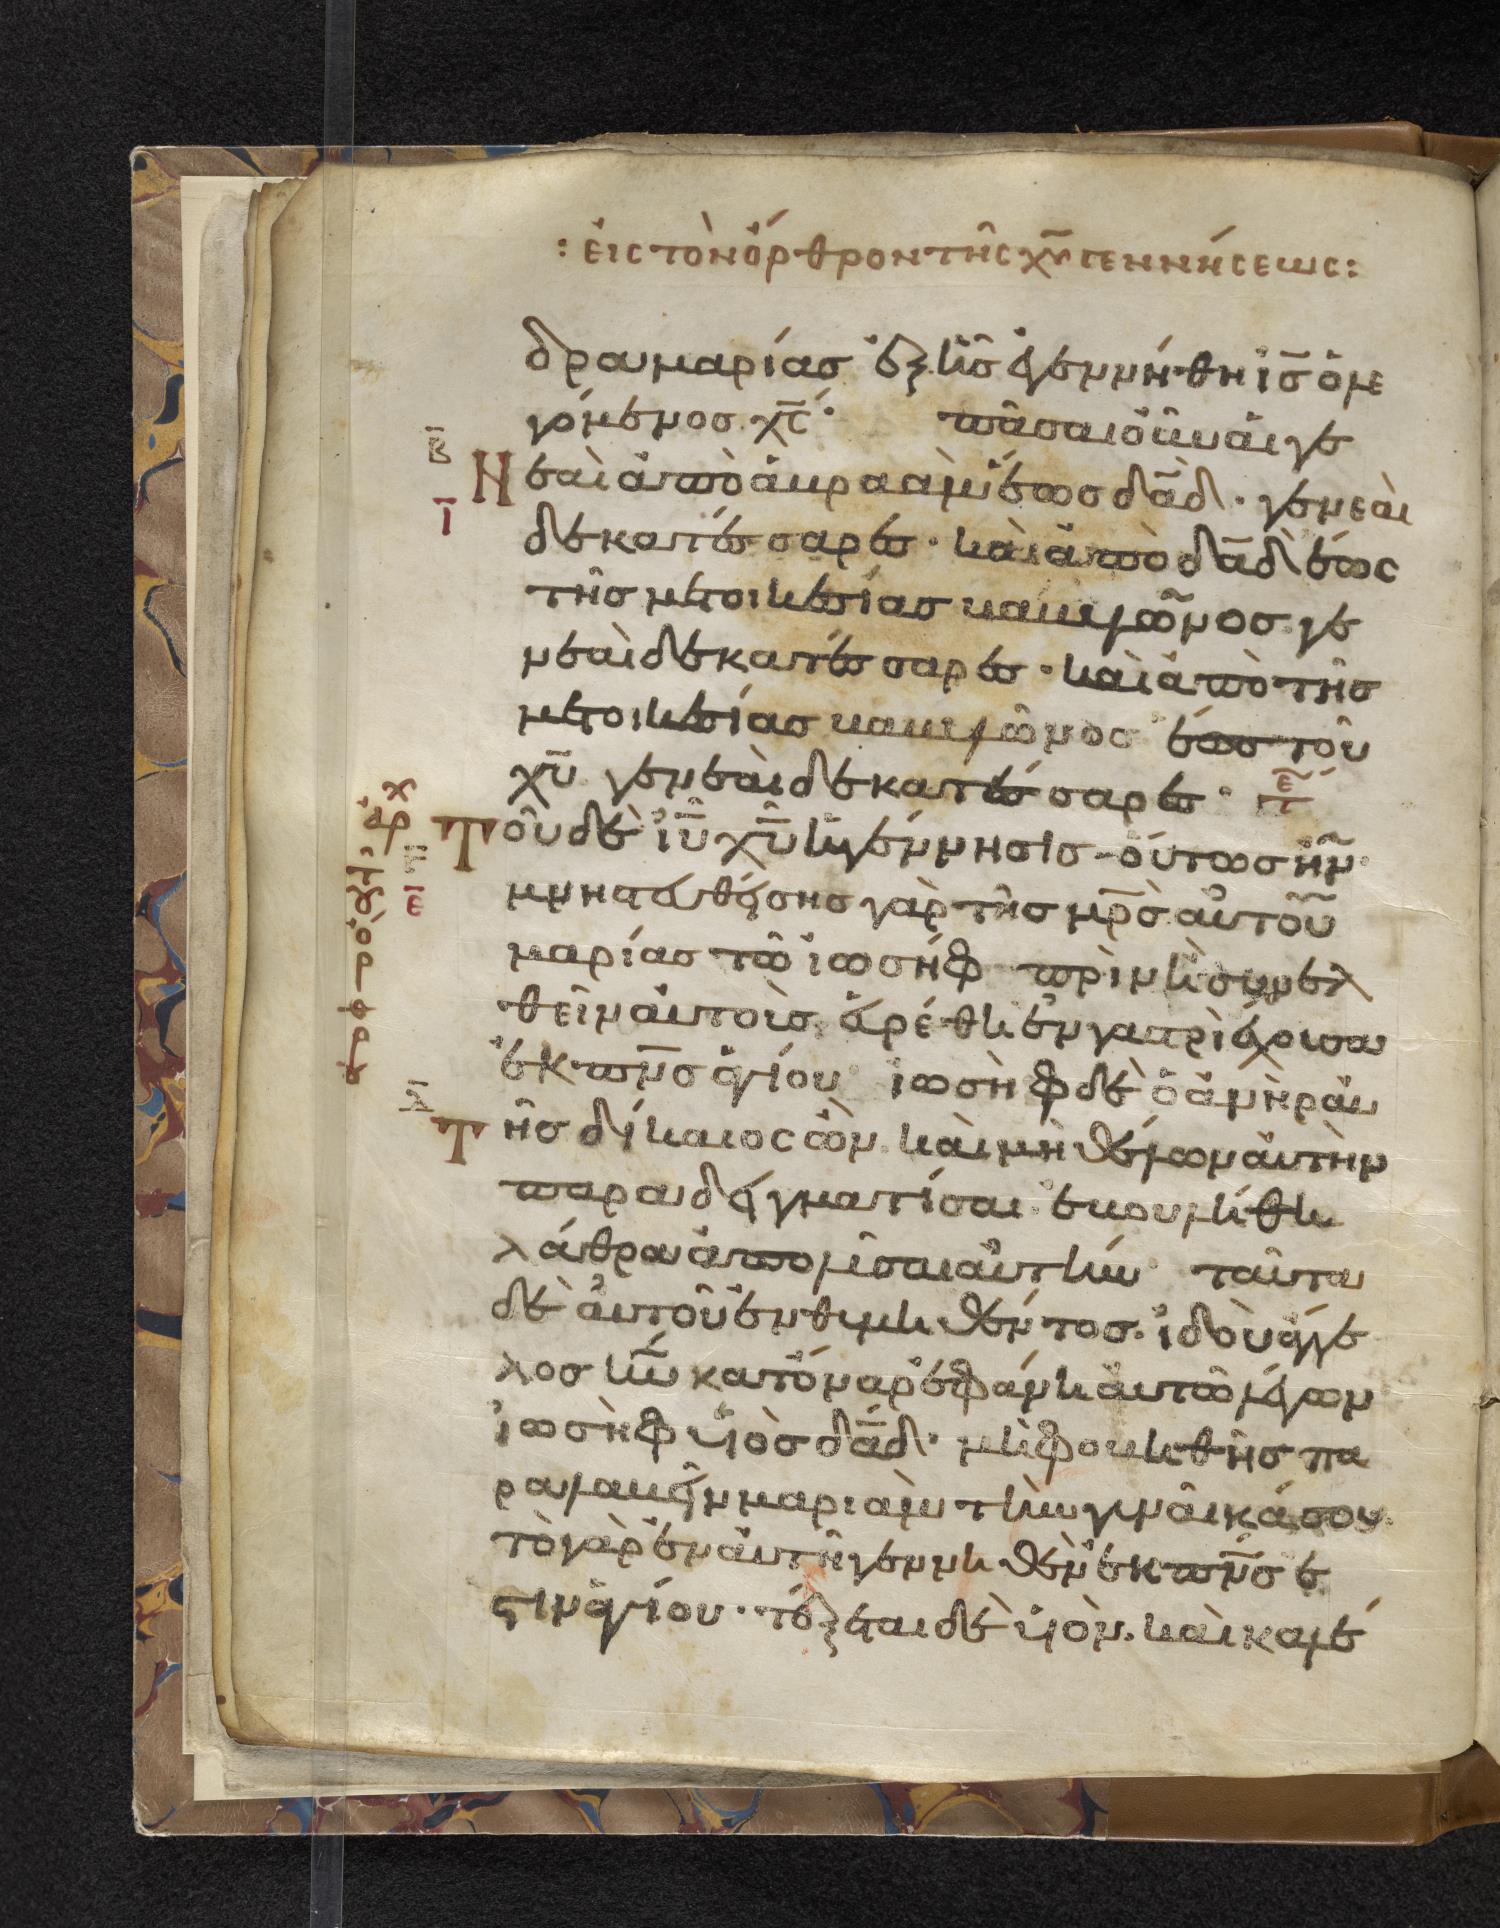 : εἰς τὸν ὄρθρον τῆς χυ̅ γεννήσεως :
δρα μαρίας ἐξ ἧς ἐγεννήθη ις̅ ὁ λε
γόμενος χς̅· πᾶσαι οὖν αἱ γε
β̅
νεαὶ ἀπὸ ἀβρααμ ἕως δα̅δ· γενεαὶ
ι̅
δεκατέσσαρες· καὶ ἀπὸ δα̅δ ἕως
τῆς μετοικεσίας βαβυλῶνος γε
νεαὶ δεκατέσσαρες· καὶ ἀπὸ τῆς
μετοικεσίας βαβυλῶνος ἕως τοῦ
χυ̅ γενεαὶ δεκατέσσαρες· τε̅
Τοῦ δὲ ιυ̅ χυ̅ ἡ γέννησις οὕτως ἦν·
ε̅
μνηστευθείσης γὰρ τῆς μρ̅ς αὐτοῦ
μαρίας τῶ ἰωσὴφ πρὶν ἢ συνελ
θεῖν αὐτοὺς εὑρέθη ἐν γαστρὶ ἔχουσα
ἐκ πν̅ς ἁγίου ἰωσὴφ δὲ ὁ ἀνὴρ αὐ
Τῆς δίκαιος ὢν καὶ μὴ θέλων αὐτὴν
παραδειγματίσαι ἐβουλήθη
λάθρα ἀπολῦσαι αὐτήν ταῦτα
δὲ αὐτοῦ ἐνθυμηθέντος ἰδοὺ ἄγγε
λος κυ̅ κατ' ὄναρ ἐφάνη αὐτῶ λέγων
ἰωσὴφ υἱὸς δα̅δ· μὴ φοβηθῆς πα
ραλαβεῖν μαριὰμ τὴν γυναῖκά σου
τὸ γὰρ ἐν αὐτῆ γεννηθὲν ἐκ πν̅ς ἐ
στιν ἁγίου· τέξεται δὲ υἱὸν καὶ καλέ